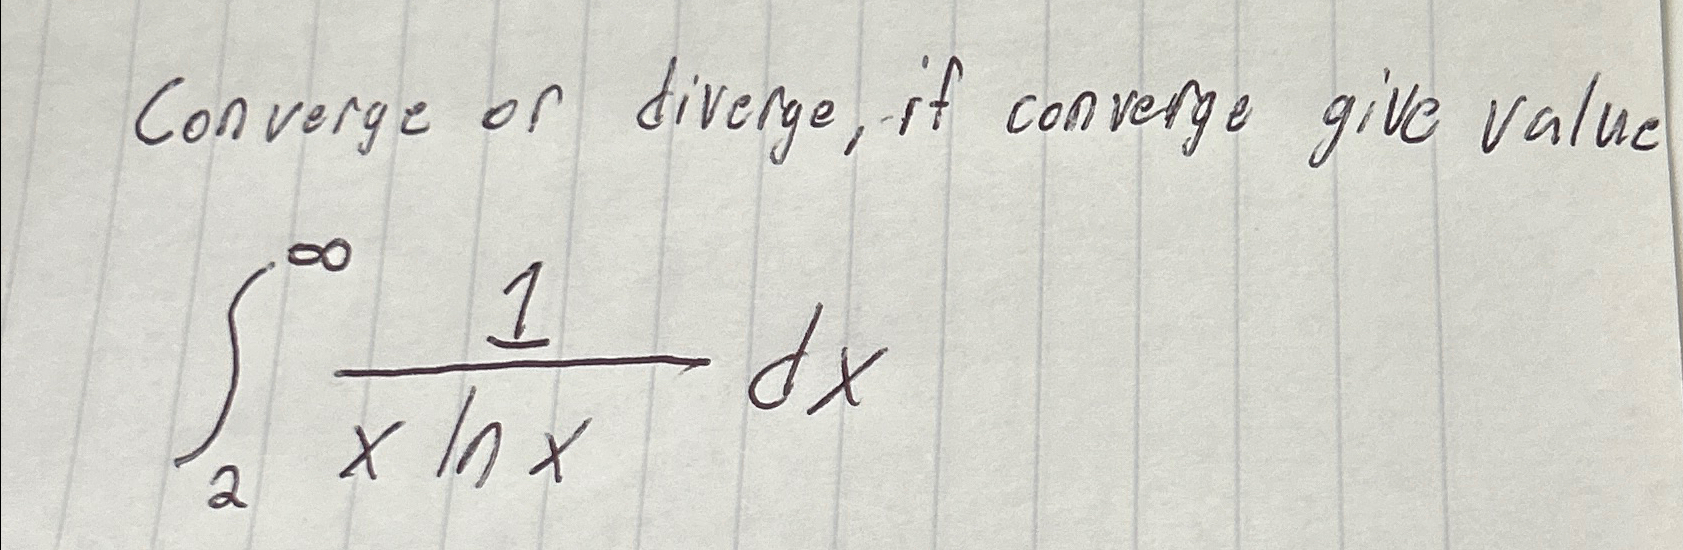 Converge or diverge, if converge give value
∫₂^∞ 1/(x ln x) dx